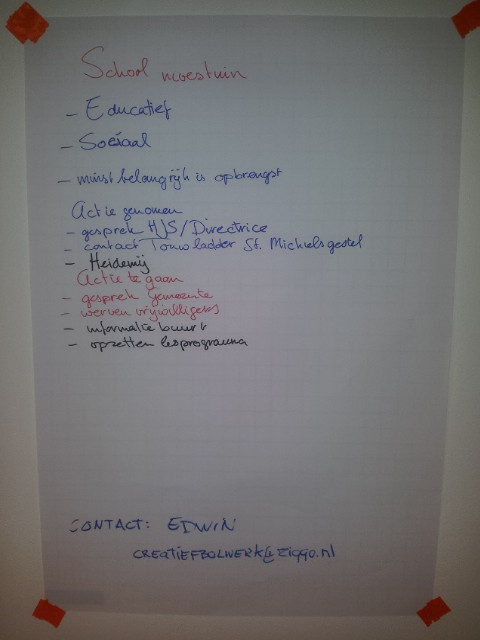 School moestuin
- Educatief
- Sociaal
- minst belangrijk is opbrengst
Actie genomen
- gesprek HJS/Directrice
- contact Tomoladder St. Michielsgestel
- Heidemij
Actie te gaan
- gesprek Gemeente
- werven vrijwilligers
- informatie buurt
- opzetten lesprogramma
CONTACT: EDWIN
CREATIEFBOLWERK@ZIGGO.nl